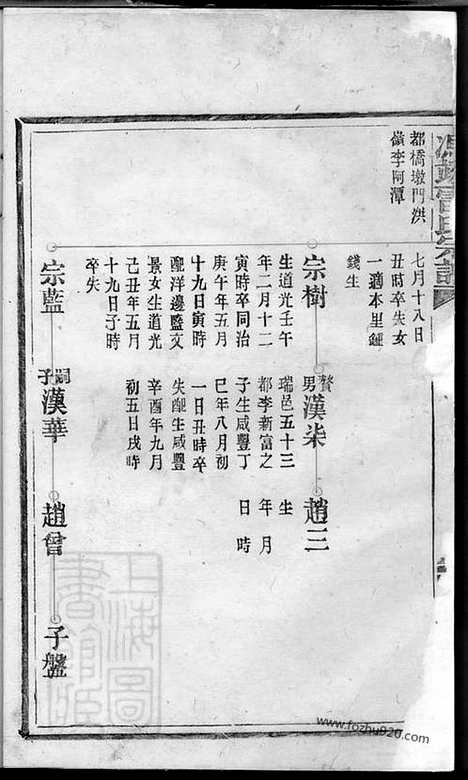 都橋墩門洪
嶺李阿潭
七月十八日
丑時卒失女
一適本里鍾
錢生
宗樹
生道光壬午
年二月十二
寅時卒同治
庚午年五月
十九日寅時
配洋邊藍文
景女生道光
己丑年五月
十九日子時
卒失
贅男漢柒
瑞邑五十三
都李新富之
子生咸豐丁
巳年八月初
一日丑時卒
失配生咸豐
辛酉年九月
初五日戌時
趙三
生
年月
日時
宗藍
嗣子漢華
趙曾
子盤
上海圖書館
www.fozhu920.com